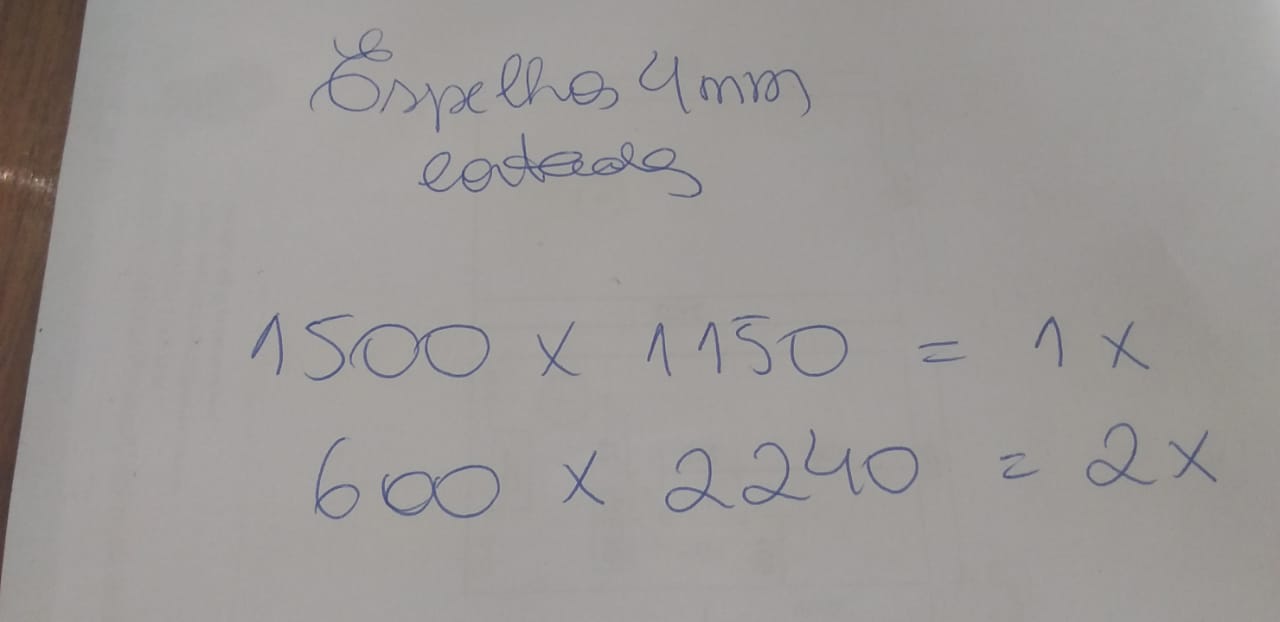 Espelhos 4mm
1500 x 1150 = 1x
600 x 2240 = 2x